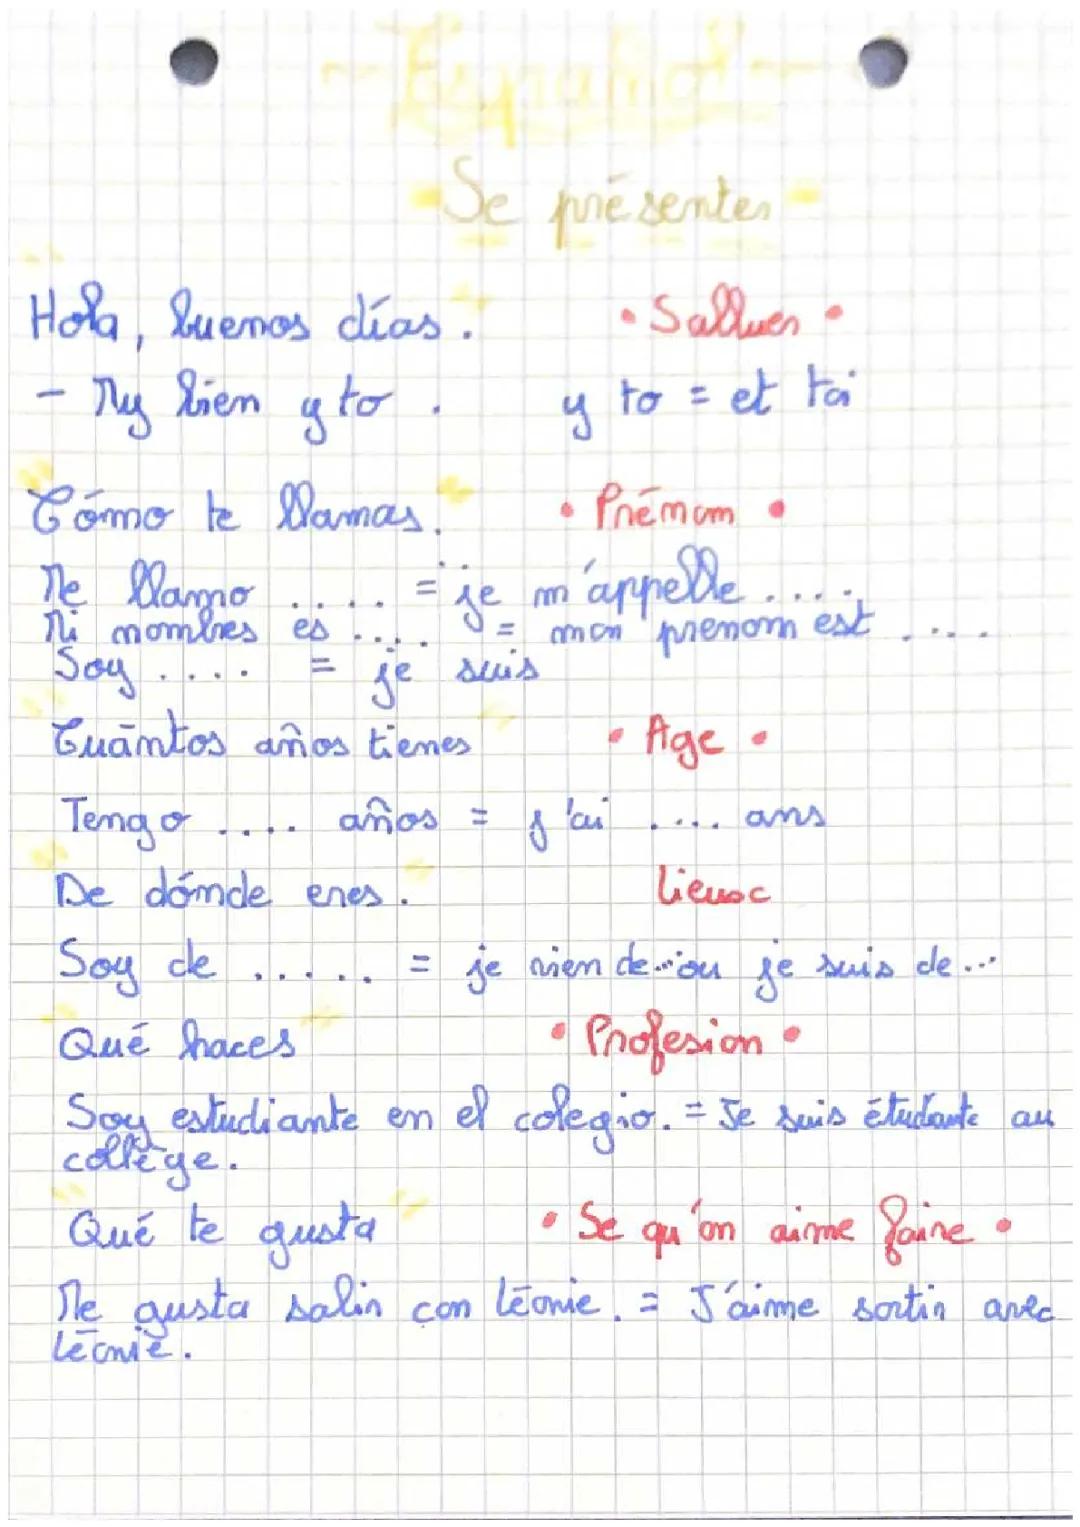 Español
- Se présenter -
Hola, buenos días. • Salluer •
- My bien y to. y to = et toi
Cómo te llamas. • Prénom •
Me llamo .... = je m'appelle ....
Mi nombres es .... = mon prenom est ....
Soy .... = je suis
Cuántos años tienes • Age •
Tengo .... años = j'ai .... ans
De dónde eres. lieux
Soy de ..... = je vien de ... ou je suis de ...
Qué haces • Profesion •
Soy estudiante en el colegio. = Je suis étudiante au
collège.
Qué te gusta • Se qu'on aime faire •
Me gusta salir con Léonie. = J'aime sortir avec
Léonie.